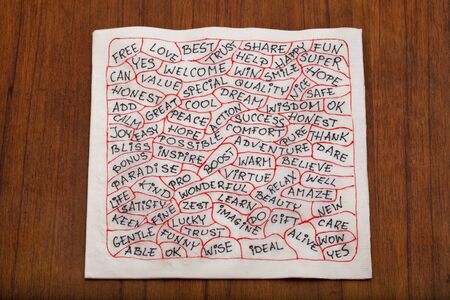 FREE LOVE BEST TRUST SHARE HAPPY FUN
YES WELCOME HELP WIN SMILE SUPER
CAN VALUE SPECIAL QUALITY NICE HOPE
HONEST COOL DREAM WISDOM SAFE
ADD GREAT ACTION SUCCESS OK
CALM PEACE HONEST
JOY EASY HOPE COMFORT PURE THANK
BLISS POSSIBLE ADVENTURE DARE
BONUS INSPIRE BOOST WARM BELIEVE
PARADISE PRO VIRTUE RELAX WELL
LIFE KIND WONDERFUL AMAZE
SATISFY ZEST LEARN BEAUTY NEW
KEEN FINE LUCKY IMAGINE GO GIFT CARE
GENTLE FUNNY TRUST ALIVE WOW
ABLE OK WISE IDEAL YES